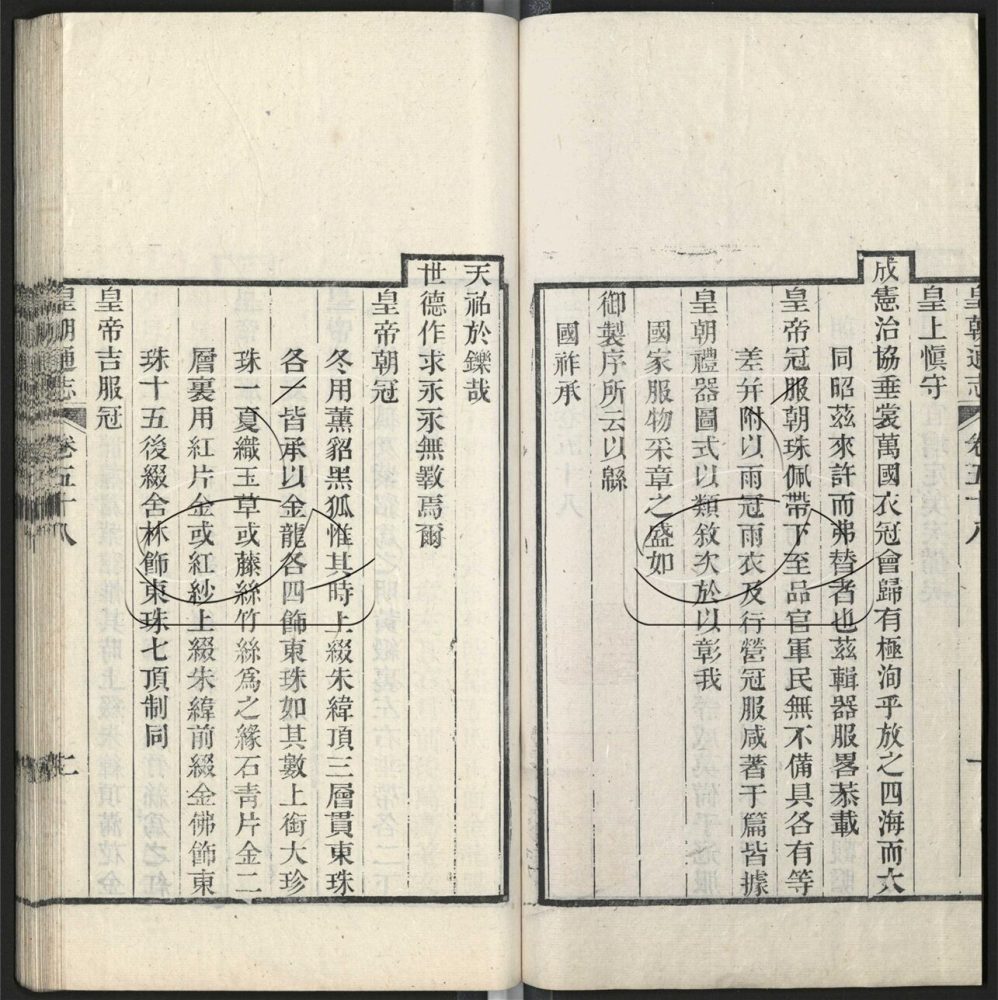 皇朝通志 卷五十八 一
皇上愼守
成憲治協垂裳萬國衣冠會歸有極洵乎放之四海而大
同昭茲來許而弗替者也茲輯器服畧恭載
皇帝冠服朝珠佩帶下至品官軍民無不備具各有等
差并附以雨冠雨衣及行營冠服咸著于篇皆據
皇朝禮器圖式以類敘次於以彰我
國家服物采章之盛如
御製序所云以緜
國祚承
天祐於鑠哉
世德作求永永無斁焉爾
皇帝朝冠
冬用薰貂黑狐惟其時上綴朱緯頂三層貫東珠
各一皆承以金龍各四飾東珠如其數上銜大珍
珠一夏織玉草或藤絲竹絲爲之緣石靑片金二
層裏用紅片金或紅紗上綴朱緯前綴金佛飾東
珠十五後綴舍林飾東珠七頂制同
皇帝吉服冠
皇朝通志 卷五十八 二